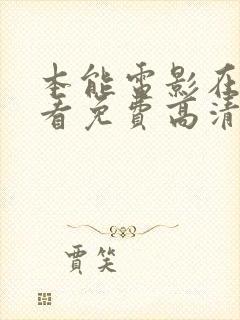 本能雷影在
看免費高清
賈笑